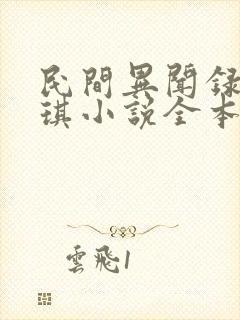 民間異聞録
琪小說全本
雲飛1